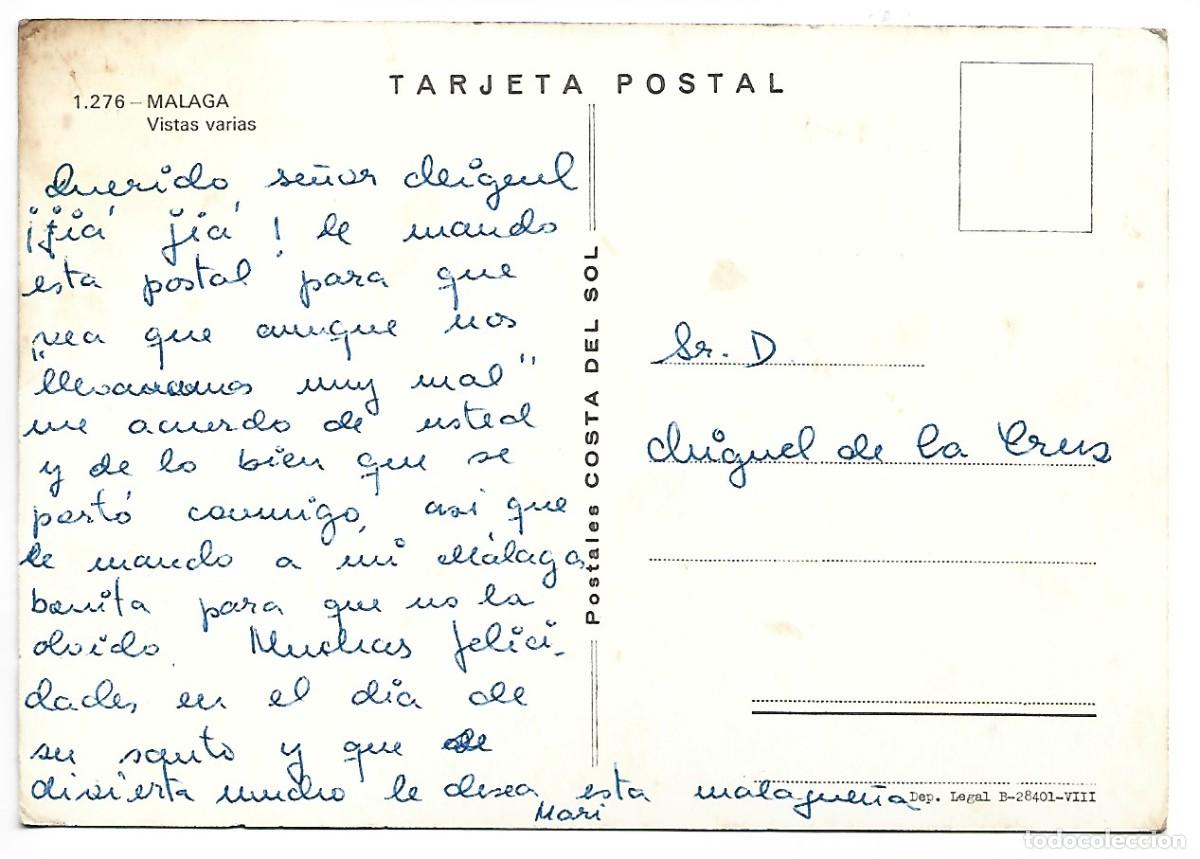 TARJETA POSTAL
1.276 – MALAGA
Vistas varias
Querido señor Miguel
¡jiá jiá! le mando
esta postal para que
vea que aunque nos
"llevamos muy mal"
me acuerdo de usted
y de lo bien que se
portó conmigo, asi que
le mando a mi Málaga
bonita para que no la
olvido. Muchas felici-
dades en el dia de
su santo y que se
divierta mucho le desea esta malagueña
Mari
Postales COSTA DEL SOL
Sr. D.
Miguel de la Crus
Dep. Legal B-28401-VIII
todocoleccion